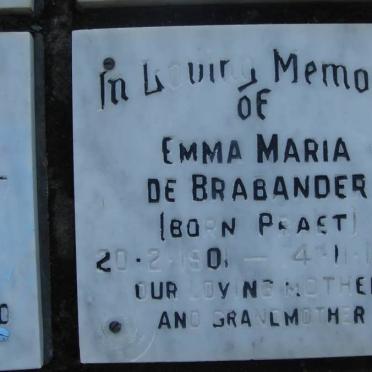 In Loving Memo
OF
EMMA MARIA
DE BRABANDER
(BORN PRAET)
20-2-1901 — 4-11-1
OUR LOVING MOTHER
AND GRANDMOTHER